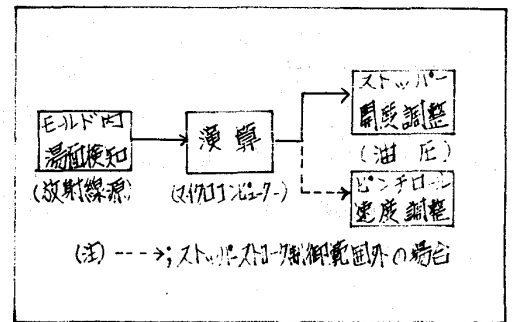 モールド内
湯面検知
(放射線源)
演算
(マイクロコンピューター)
ストッパー
開度調整
(油圧)
ピンチロール
速度調整
(注) ----→;ストッパーストローク制御範囲外の場合